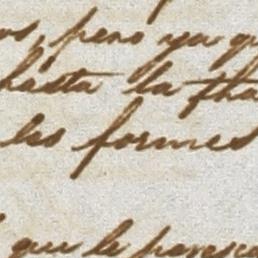 os, pero ya qu
hasta la tha
las formes
que le paresca